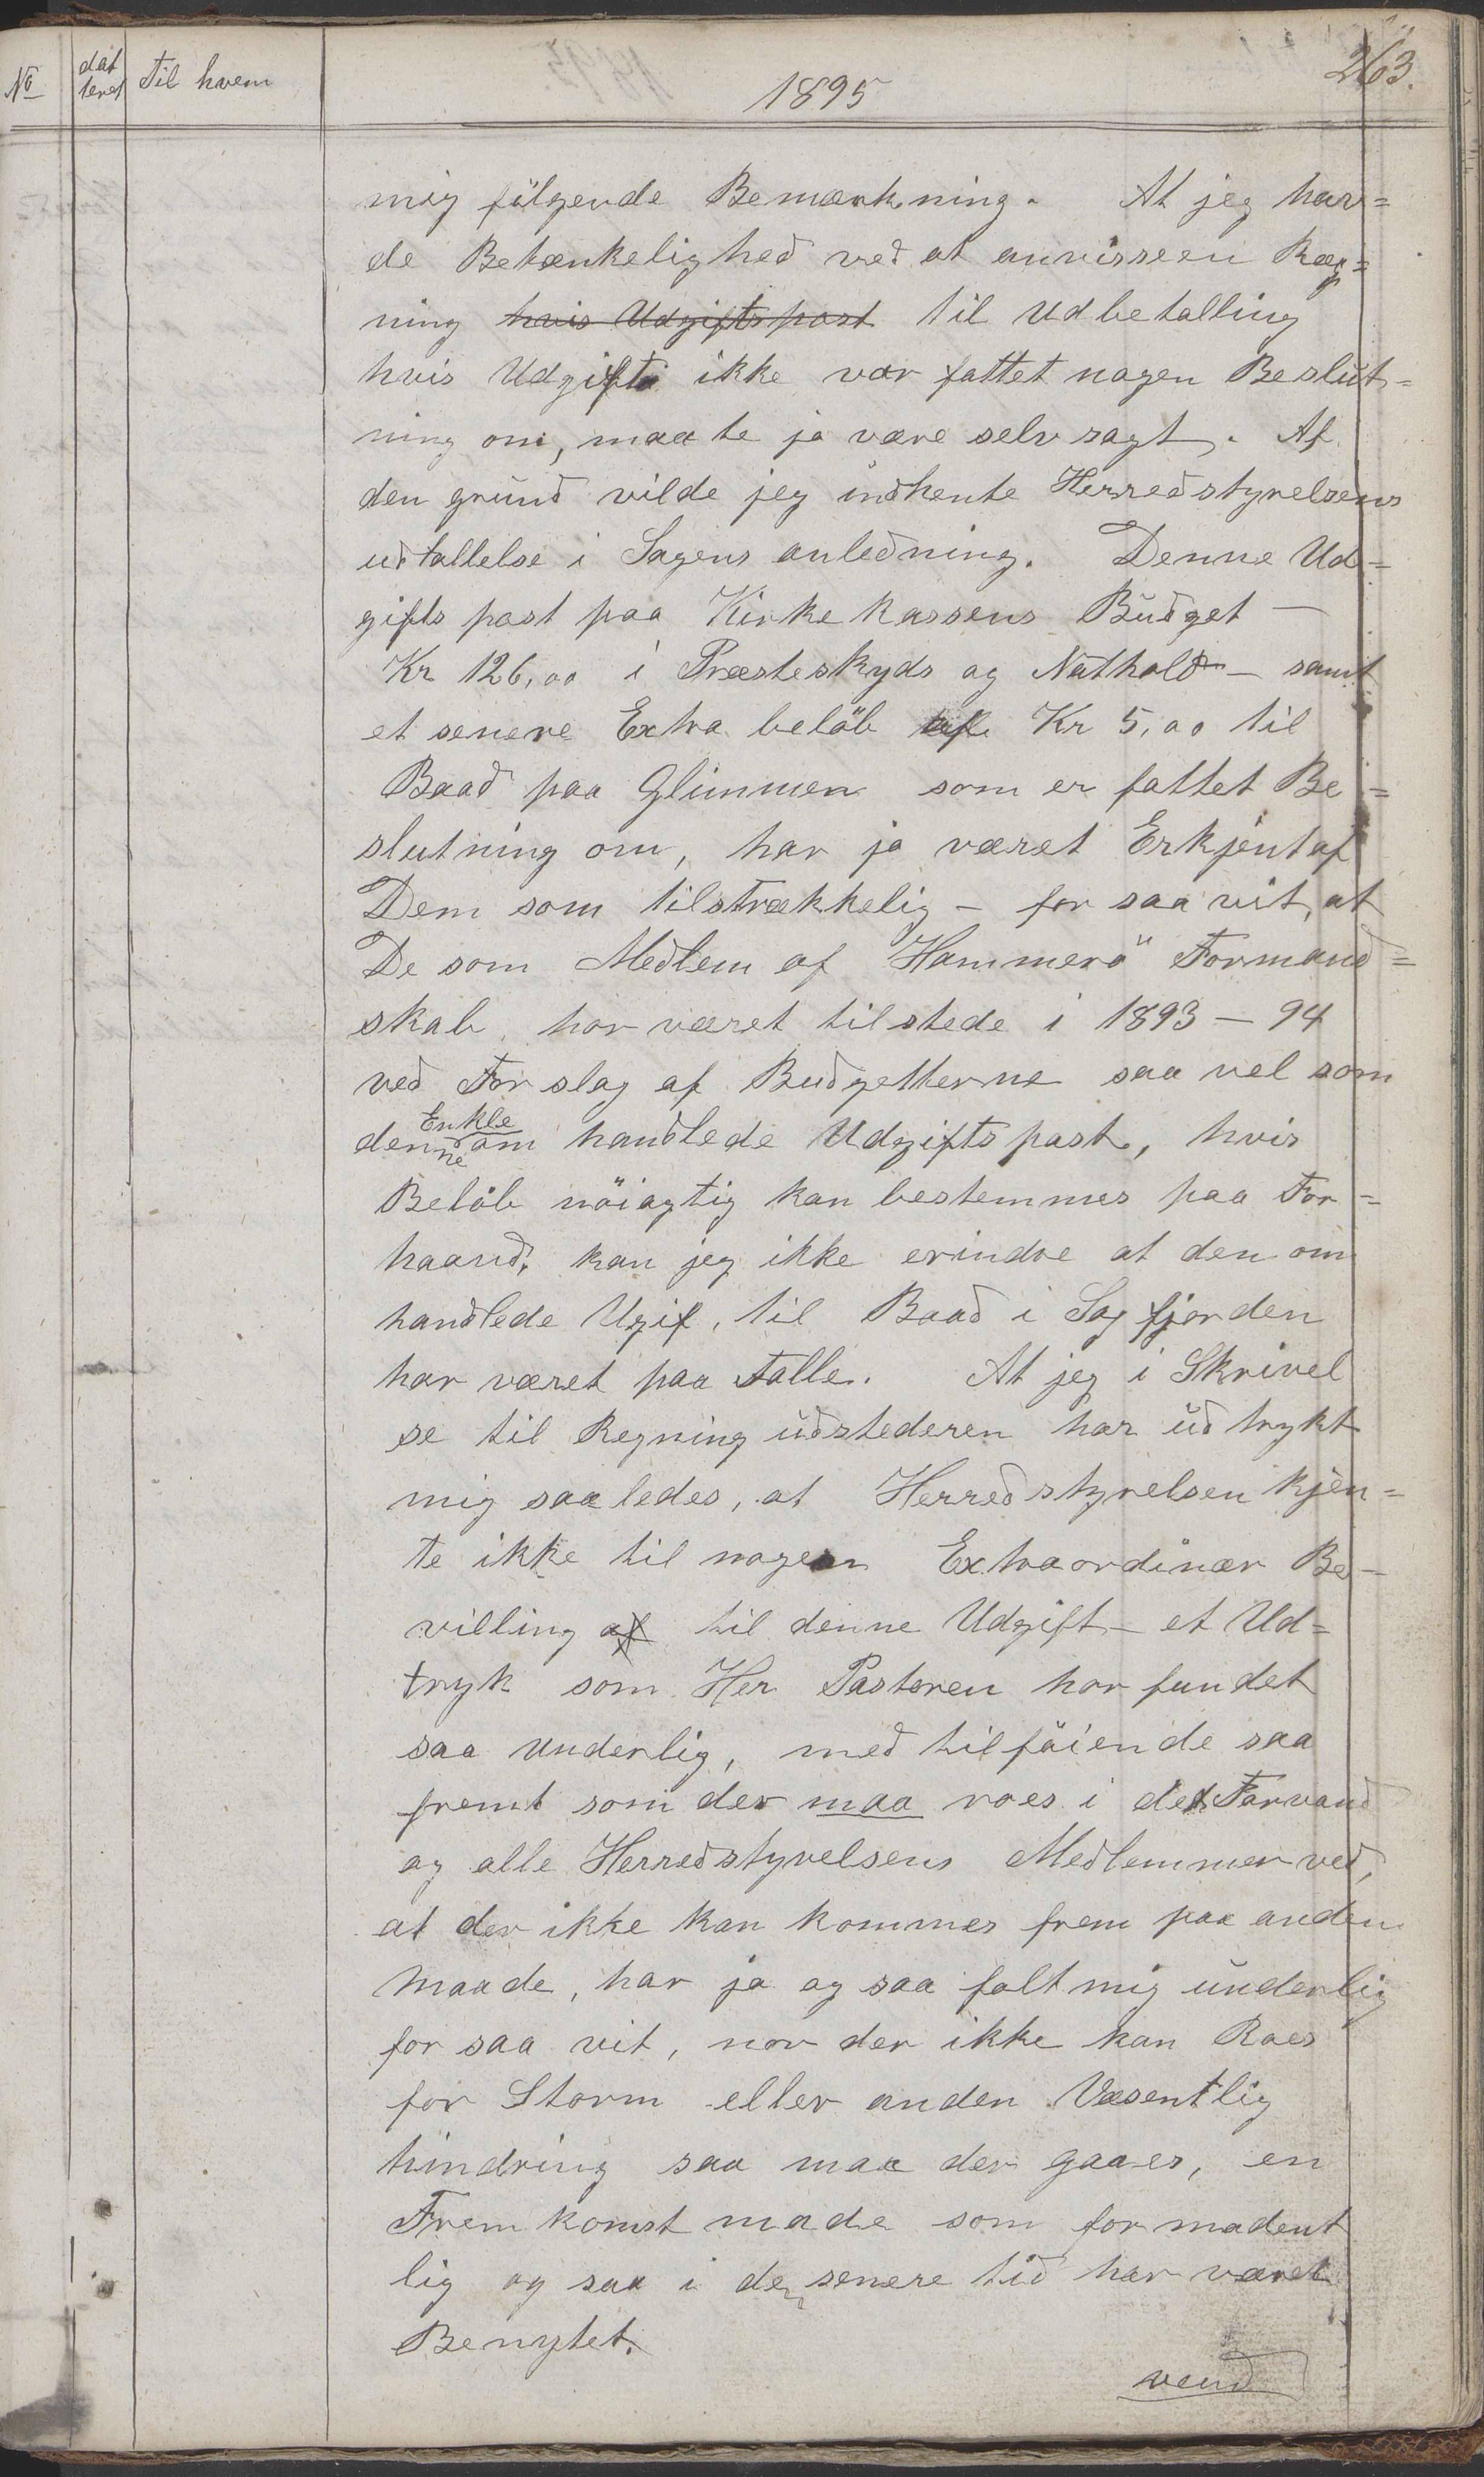 No
dat
teret
Til hvem
1895
263.
mig følgende Bemærkning. At jeg hav=
de Betænkelighed ved at anvisseen Ræg=
ning hvis Udgiftspost til Udbetalling
hvis Udgifts ikke var fattet nogen Beslut=
ning om, maate ja være selvsagt. Af
den grund vilde jeg indhente Herredstyrelsens
udtallelse i Sagens anledning. Denne Ud=
gifts post paa Kirkekassens Budget —
Kr 126,00 i Præsteskyds og Nathold — samt
et senere Extra beløb af Kr 5,00 til
Baad paa Glimmen som er fattet Be=
slutning om, har jo været Erkjent af
Dem som tilstrækkelig — for saa vit, at
De som Medlem af Hammerø Formand=
skab, har været tilstede i 1893 — 94
ved Forslag af Budgetterne saa vel som
denne Enkle om handlede Udgiftspost, hvis
Beløb nøiagtig kan bestemmes paa For=
haand, kan jeg ikke erindre at den om
handlede Ugif, til Baad i Sagfjorden
har været paa Talle. At jeg i Skrivel
se til Regning udstederen har udtrykt
mig saaledes, at Herredstyrelsen kjen=
te ikke til nogen Extraordinær Be=
villing af til denne Udgift — et Ud=
tryk som Her Pastoren har fundet
saa underlig, med tilføiende saa
fremt som der maa roes i det Farvand
og alle Herredstyrelsens Medlemmer ved,
at der ikke kan kommes frem paa anden
Maade, har ja og saa falt mig underlig
for saa vit, nor der ikke kan Roes
for Storm eller anden Væsentlig
hindring saa maa der gaaes, en
Fremkomst made som formadent
lig og saa i den senere tid har været
Benytet.
vend